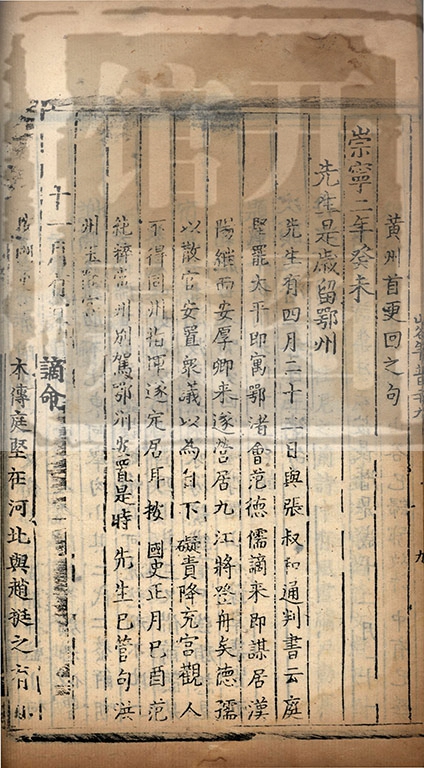 黃州首更回之句
崇寧二年癸未
先生是歲留鄂州
先生有四月二十二日與張叔和通判書云庭
堅罷太平即寓鄂渚會范德孺謫來即謀居漢
陽繼而安厚卿來遂營居九江將登舟矣德孺
以散官安置衆議以為自下礙責降充宮觀人
不得同州指揮遂定居耳按國史正月己酉范
純粹常州別駕鄂州安置是時先生已管句洪
州玉隆宮
十一月有
謫命
本傳庭堅在河北與趙挺之有